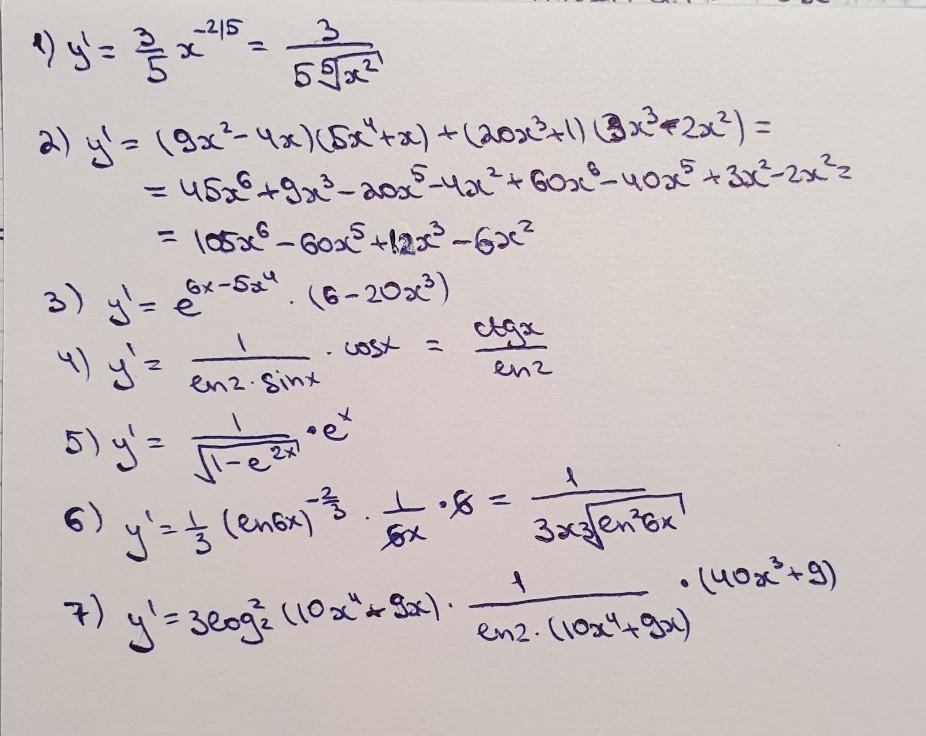 1) y' = 3/5 x^(-2/5) = 3/(5 ⁵√x²)
2) y' = (9x² - 4x)(5x⁴ + x) + (20x³ + 1)(3x³ - 2x²) =
= 45x⁶ + 9x³ - 20x⁵ - 4x² + 60x⁶ - 40x⁵ + 3x² - 2x² =
= 105x⁶ - 60x⁵ + 12x³ - 6x²
3) y' = e^(6x - 5x⁴) · (6 - 20x³)
4) y' = 1/(ln2 · sinx) · cosx = ctgx/ln2
5) y' = 1/√(1 - e^(2x)) · e^x
6) y' = 1/3 (ln6x)^(-2/3) · 1/(6x) · 6 = 1/(3x ³√(ln²6x))
7) y' = 3log₂²(10x⁴ + 9x) · 1/(ln2 · (10x⁴ + 9x)) · (40x³ + 9)